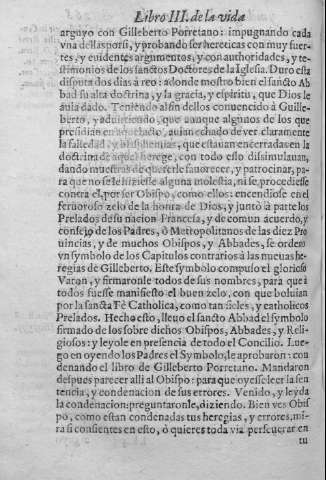 Libro III. de la vida
arguyo con Gilleberto Porretano: impugnando cada
vna dellas por si, y probando ser hereticas con muy fuer-
tes, y euidentes argumentos, y con authoridades, y te-
stimonios de los sanctos Doctores de la Iglesia. Duro esta
disputa dos dias à reo: adonde mostro bien el sancto Ab
bad su alta doctrina, y la gracia, y espiritu, que Dios le
auia dado. Teniendo al fin dellos conuencido à Guille-
berto, y aduirtiendo, que aunque algunos de los que
presidian en aquel acto, auian echado de ver claramente
la falsedad, y blasphemias, que estauan encerradas en la
doctrina de aquel herege, con todo esso dissimulauan,
dando muestras de quererle fauorecer, y patrocinar, pa-
ra que no se le hiziesse alguna molestia, ni se procediesse
contra el, por ser Obispo, como ellos: encendiose en el
feruoroso zelo de la honra de Dios, y juntò à parte los
Prelados de su nacion Francesa, y de comun acuerdo, y
consejo de los Padres, ò Metropolitanos de las diez Pro
uincias, y de muchos Obispos, y Abbades, se ordeno
vn symbolo de los Capitulos contrarios à las nueuas he-
regias de Gilleberto. Este symbolo compuso el glorioso
Varon, y firmaronle todos de sus nombres, para que à
todos fuesse manifiesto el buen zelo, con que boluian
por la sancta Fè Catholica, como tan fieles, y catholicos
Prelados. Hecho esto, lleuo el sancto Abbad el symbolo
firmado de los sobre dichos Obispos, Abbades, y Reli-
giosos: y leyole en presencia de todo el Concilio. Lue-
go en oyendo los Padres el Symbolo, le aprobaron: con
denando el libro de Gilleberto Porretano. Mandaron
despues parecer alli al Obispo: para que oyesse leer la sen
tencia, y condenacion de sus errores. Venido, y leyda
la condenacion: preguntaronle, diziendo. Bien ves Obis
po, como estan condenadas tus heregias, y errores, mi-
ra si consientes en esto, ò quieres toda via perseuerar en
tu